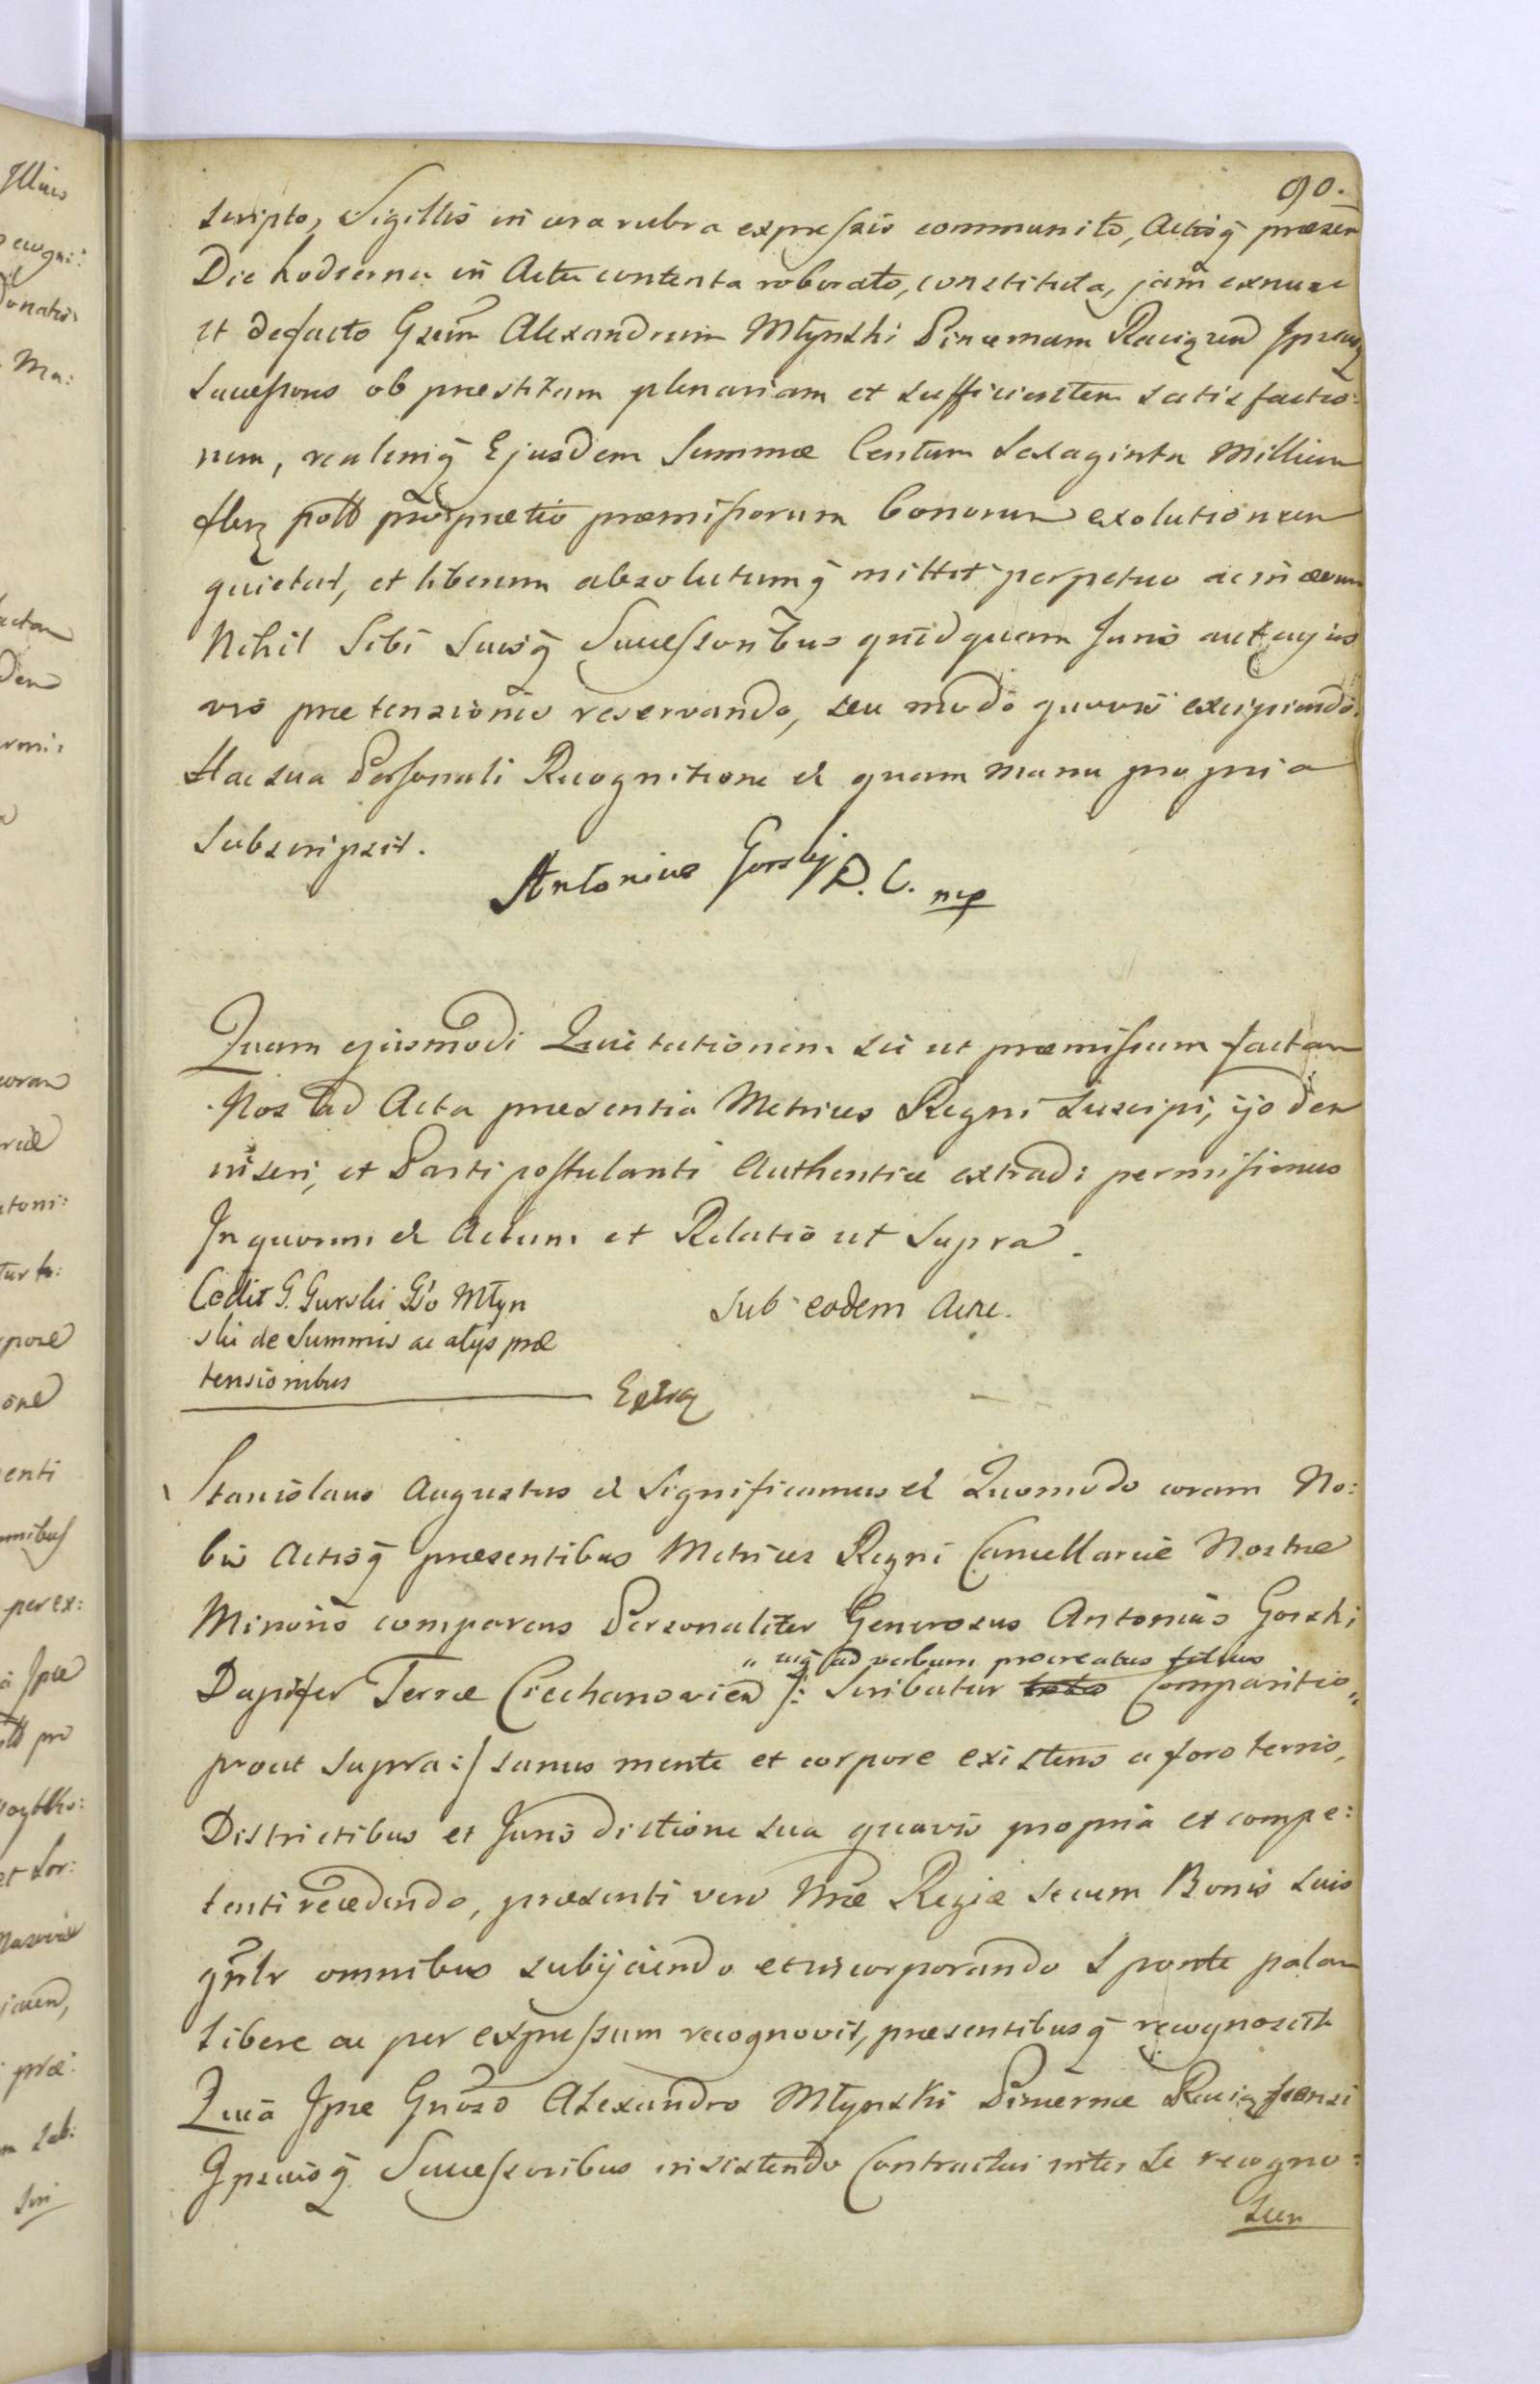 90.
scripto, Sigillis in cera rubra expressis communito, Actisq̃ præsen
Die hodierna in Actu contenta roborato, constituta, jam exnunc
et defacto Gsum Alexandrum Młynski Pincernam Raciąz en Ipsiusq
Successores ob præstitam plenariam et sufficientem satisfactio:
nem, realemq̃ Ejusdem Summæ Centum Sexaginta Millium
flnz poll pro prætio præmissorum Bonorum exolutionem
quietat, et liberum absolutumq̃ mittit perpetuo ac in ævum
Nihil Sibi Suisq̃ Successoribus quidquam Juris aut cujus
vis prætensionis reservando, seu modo quovis excipiendo.
Hac sua Personali Recognitione et quam manu propria
Subscripsit.
Antonius Gorski P. C. mp
Quam ejusmodi Quietationem sic ut præmissum factam
Nos ad Acta præsentia Metrices Regni Suscipi, ijsdem
inseri, et Parti postulanti Authentice extradi permisimus
In quorum et Actum et Relatio ut Supra.
Cedit G. Gurski Gso Młyn
ski de Summis ac alijs præ
tensionibus
Sub eodem Actu.
Extra
Stanislaus Augustus et Significamus et Quomodo coram No:
bis Actisq̃ præsentibus Metrices Regni Cancellariæ Nostræ
Minoris comparens Personaliter Generosus Antonius Gorski
" usq̃ ad verbum procreatus filius
Dapifer Terræ Ciechanovien /: Scribatur tota Comparitio "
prout supra :/ sanus mente et corpore existens a foro terris,
Districtibus et Jurisdictione sua quavis propria et compe:
tenti recedendo, præsenti vero Nræ Regiæ se cum Bonis suis
gnlr omnibus subijciendo et incorporando sponte palam
libere ac per expressum recognovit, præsentibusq̃ recognoscit
Quia Ipse Gnoso Alexandro Młynski Pincernæ Raciązensi
Ipsiusq̃ Successoribus insistendo Contractui inter se recogno:
scen